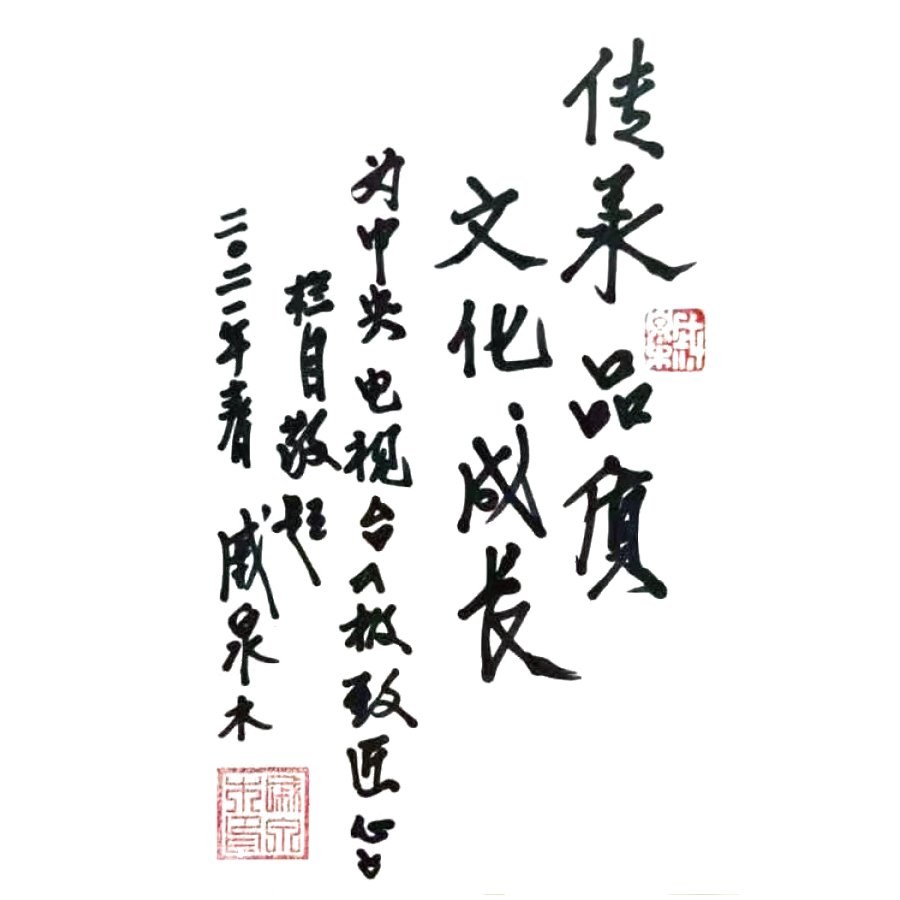 传承品质
文化成长
为中央电视台《极致匠心》
栏目敬题
二〇二一年春 戚泉木